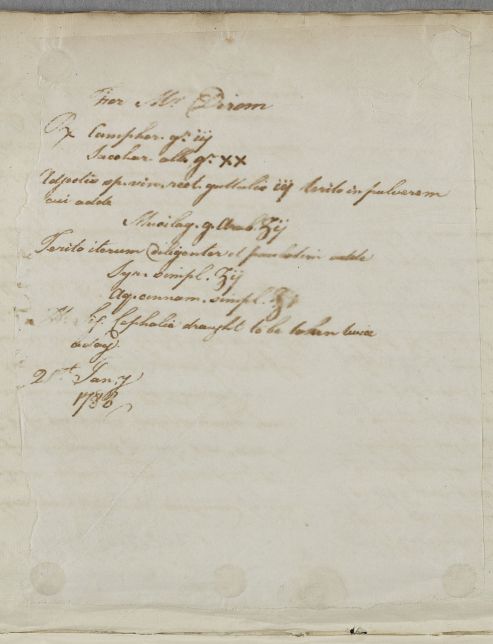 For Mr. Dirom
Rx Camphor. gr. iij
Sacchar. alb. gr. XX
Adjectis sp. vin. rect. guttulis iij terito in pulverem
cui adde
Mucilag. g. Arab. ʒij
Terito iterum diligenter et paulatim adde
Syr. simpl. ʒij
Aq. cinnam. simpl. ʒ
Cephalic draught to be taken twice
a day.
Jany
1788